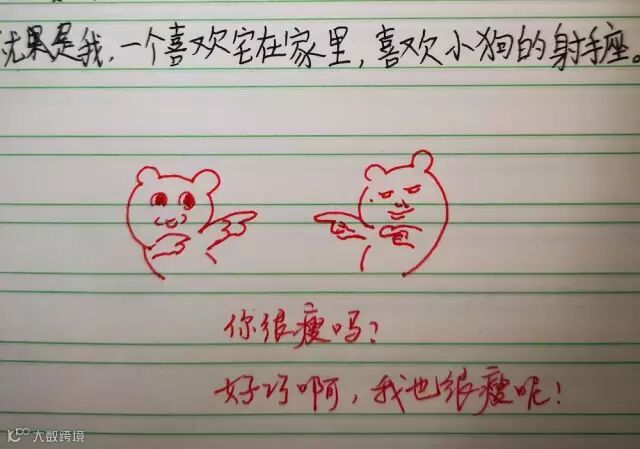 尤果是我,一个喜欢宅在家里,喜欢小狗的射手座。
你很瘦吗?
好巧啊,我也很瘦呢!
大数跨境